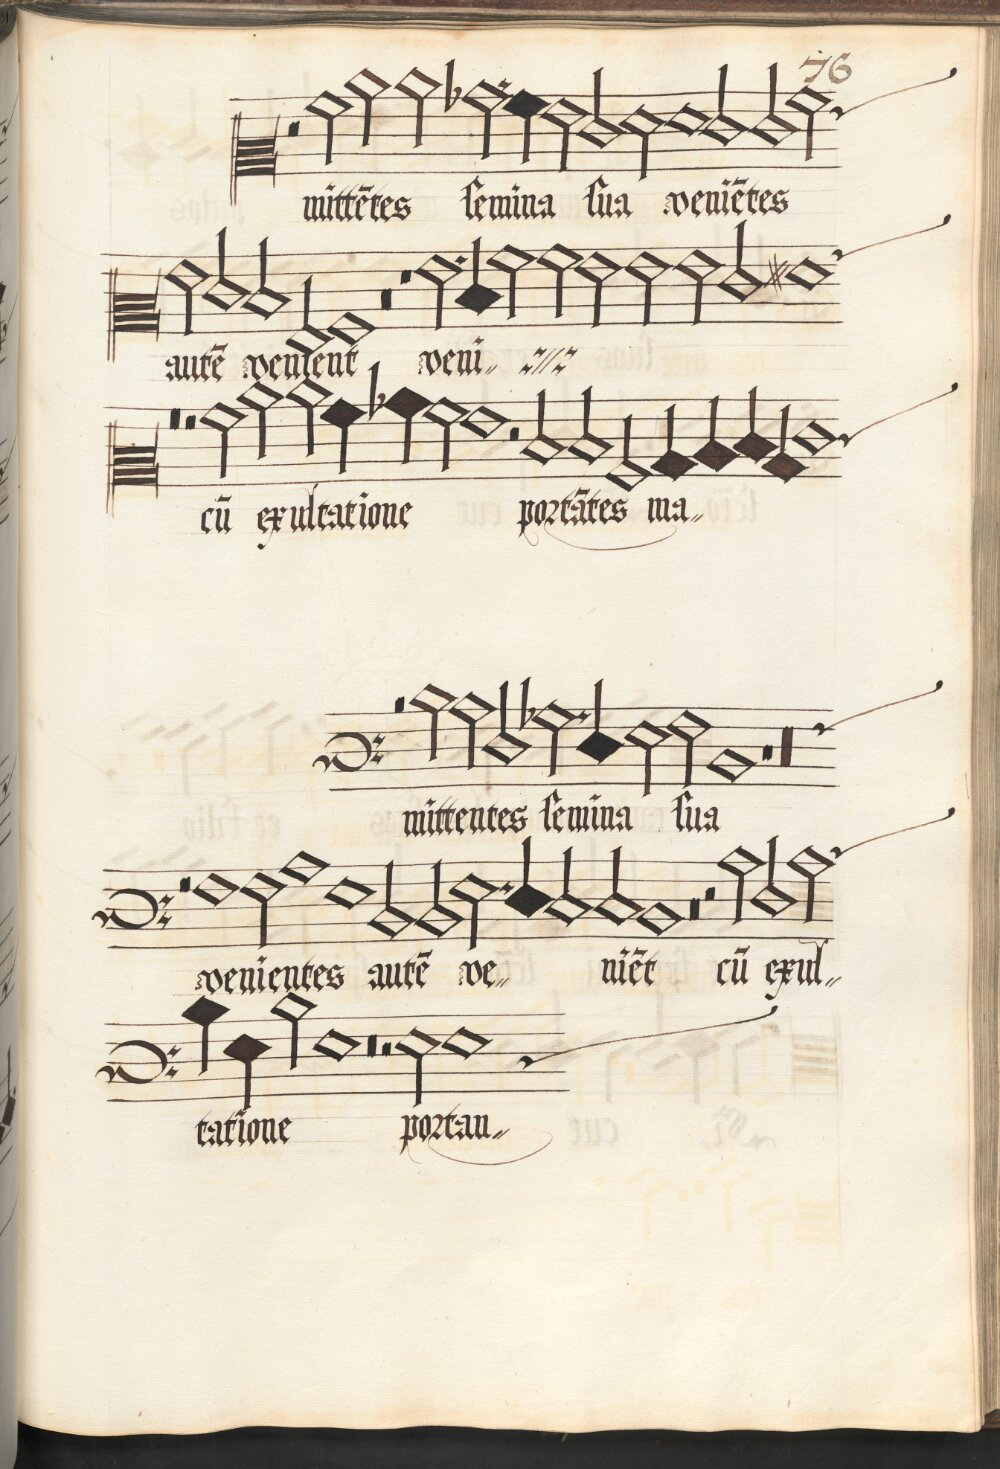 76
mittētes semina sua veniētes
autē venient veni
cū exultatione portātes ma
mittentes semina sua
venientes autē ve niēt cū exul
tatione portan